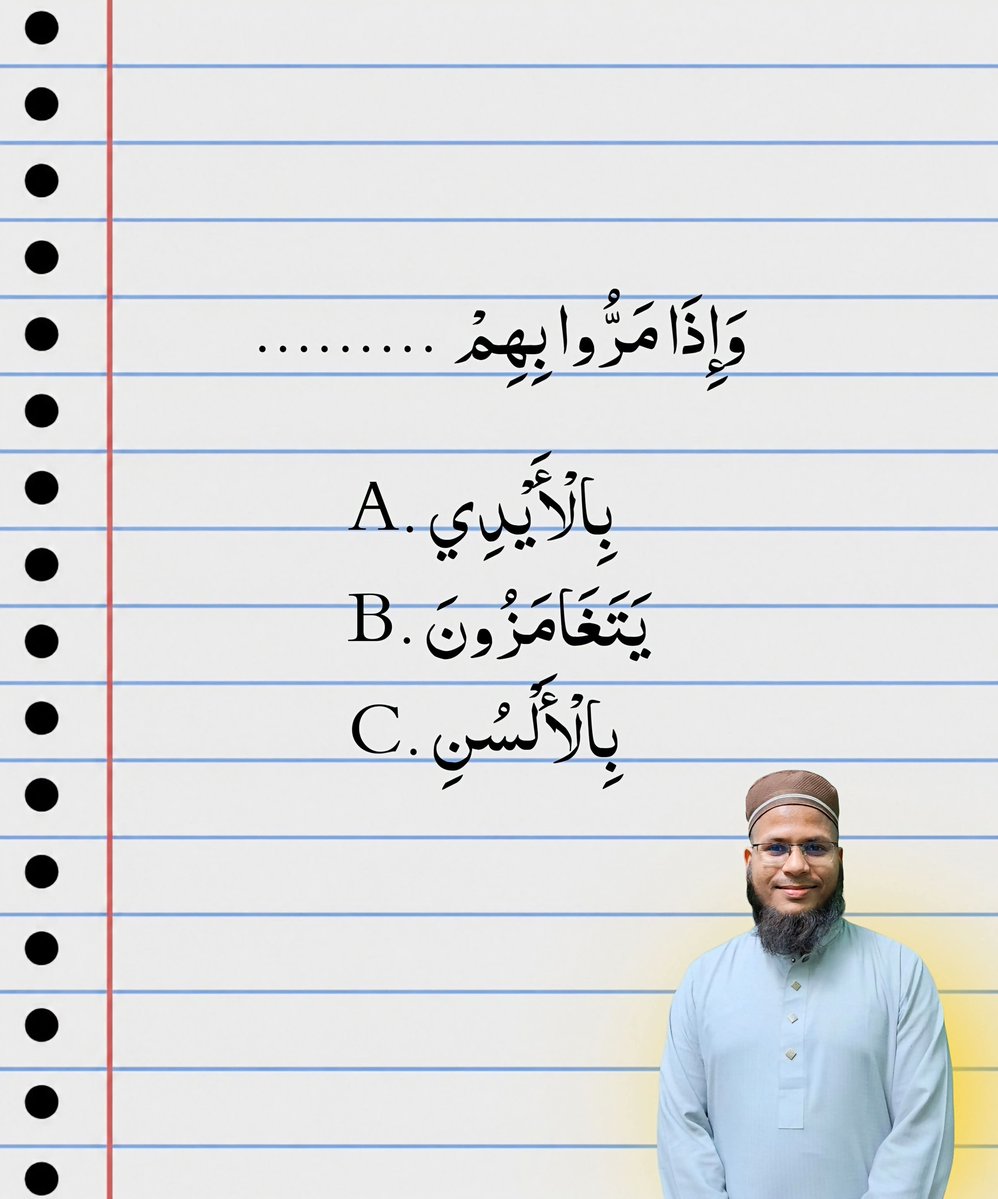 وَإِذَا مَرُّوا بِهِمْ .........
A. بِالْأَيْدِي
B. يَتَغَامَزُونَ
C. بِالْأَلْسُنِ